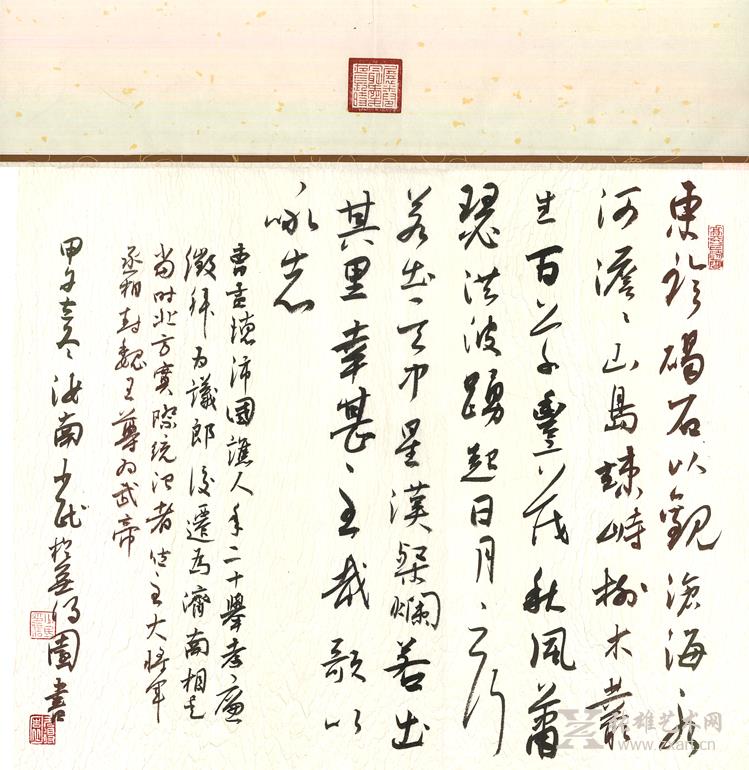 東臨碣石以觀滄海水
河澹〻山島竦峙樹木叢
生百草豐茂秋風蕭
瑟洪波踴起日月之行
若出其中星漢粲爛若出
其里幸甚至哉歌以
咏志
曹沛國譙人年二十舉孝廉
徵拜為議郎後遷為濟南相是
當時北方實際統治者位至大將軍
丞相封魏王尊為武帝
甲午立冬汝南少民於無得園書
雄艺术网